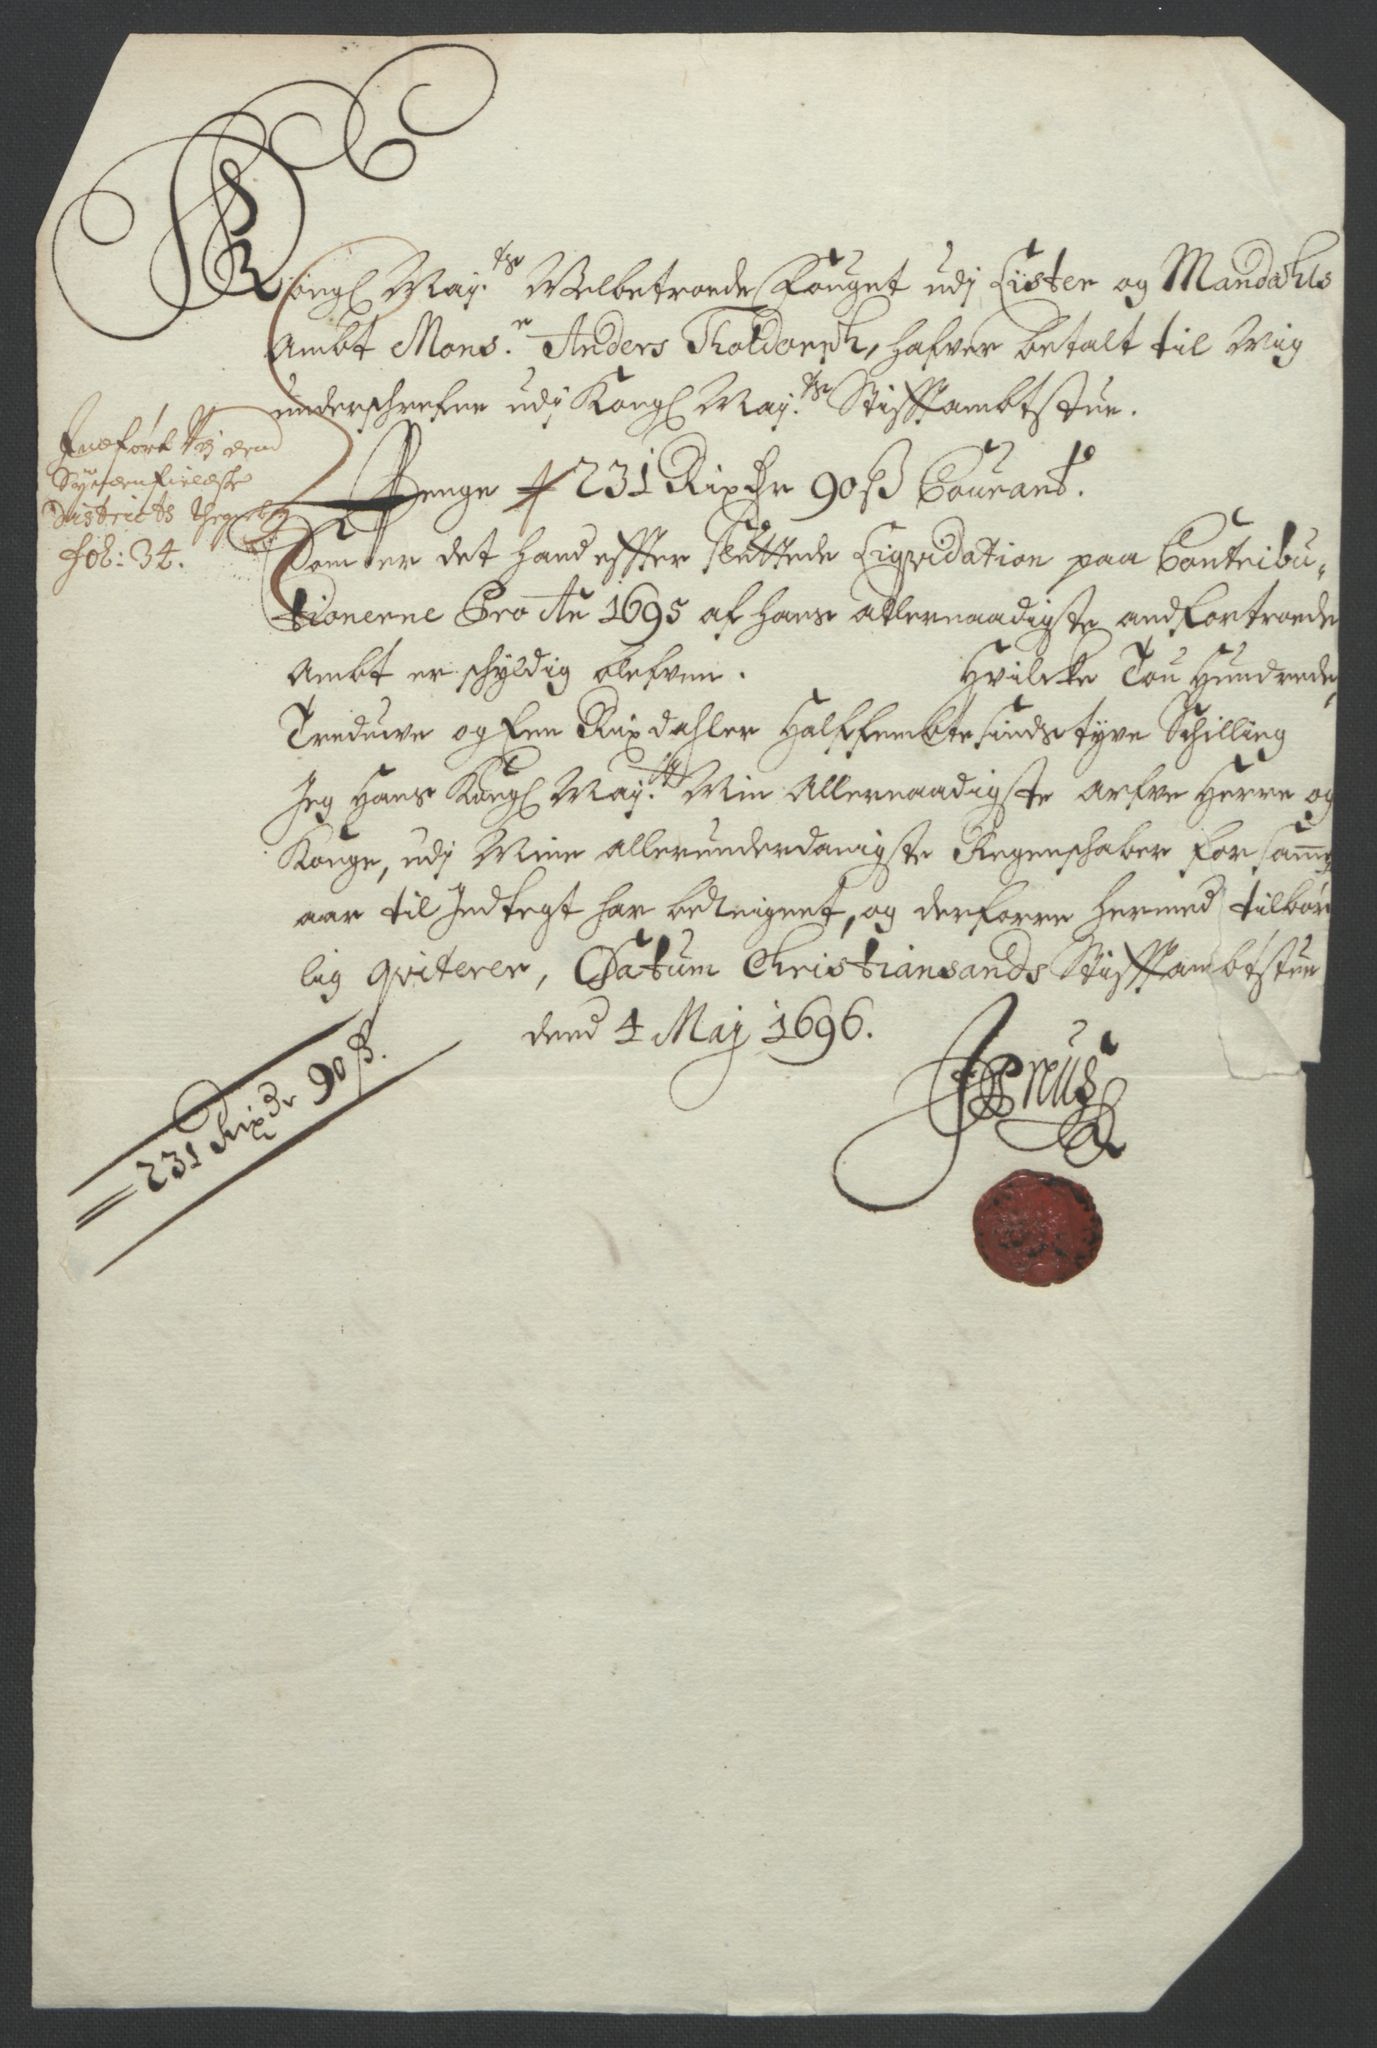 Kongl May:ts Velbetroede Fouget udj Lister og Mandahls
Ambt Mons:r Anders Tholdorph, hafver betalt til Mig
underschrefne udj Kongl May:ts Stifftambtstue.
Penge 231 Rixdr 90 ß Courant.
Som er det hand effter sluttede Liqvidation paa Contribu-
tionerne Pro Ao 1695 af hans allernaadigste andfortroede
Ambt er schyldig blefven. Hvilcke Tou Hundrede,
Tredeve og Een Rixdahler Halffembtesindstyve Schilling
Jeg Hans Kongl May:ts Min Allernaadigste Arfve Herre og
Konge, udj Mine allerunderdanigste Regenschaber for samme
aar til Indtegt har beregnet, og derforre hermed tilbør
lig qviterer, Datum Christiansands Stifftambtstue
dend 4 Maij 1696.
JPreüs
Indført udj dend
Synden fieldske
Districts
fol: 34.
231 Rixdr 90 ß.